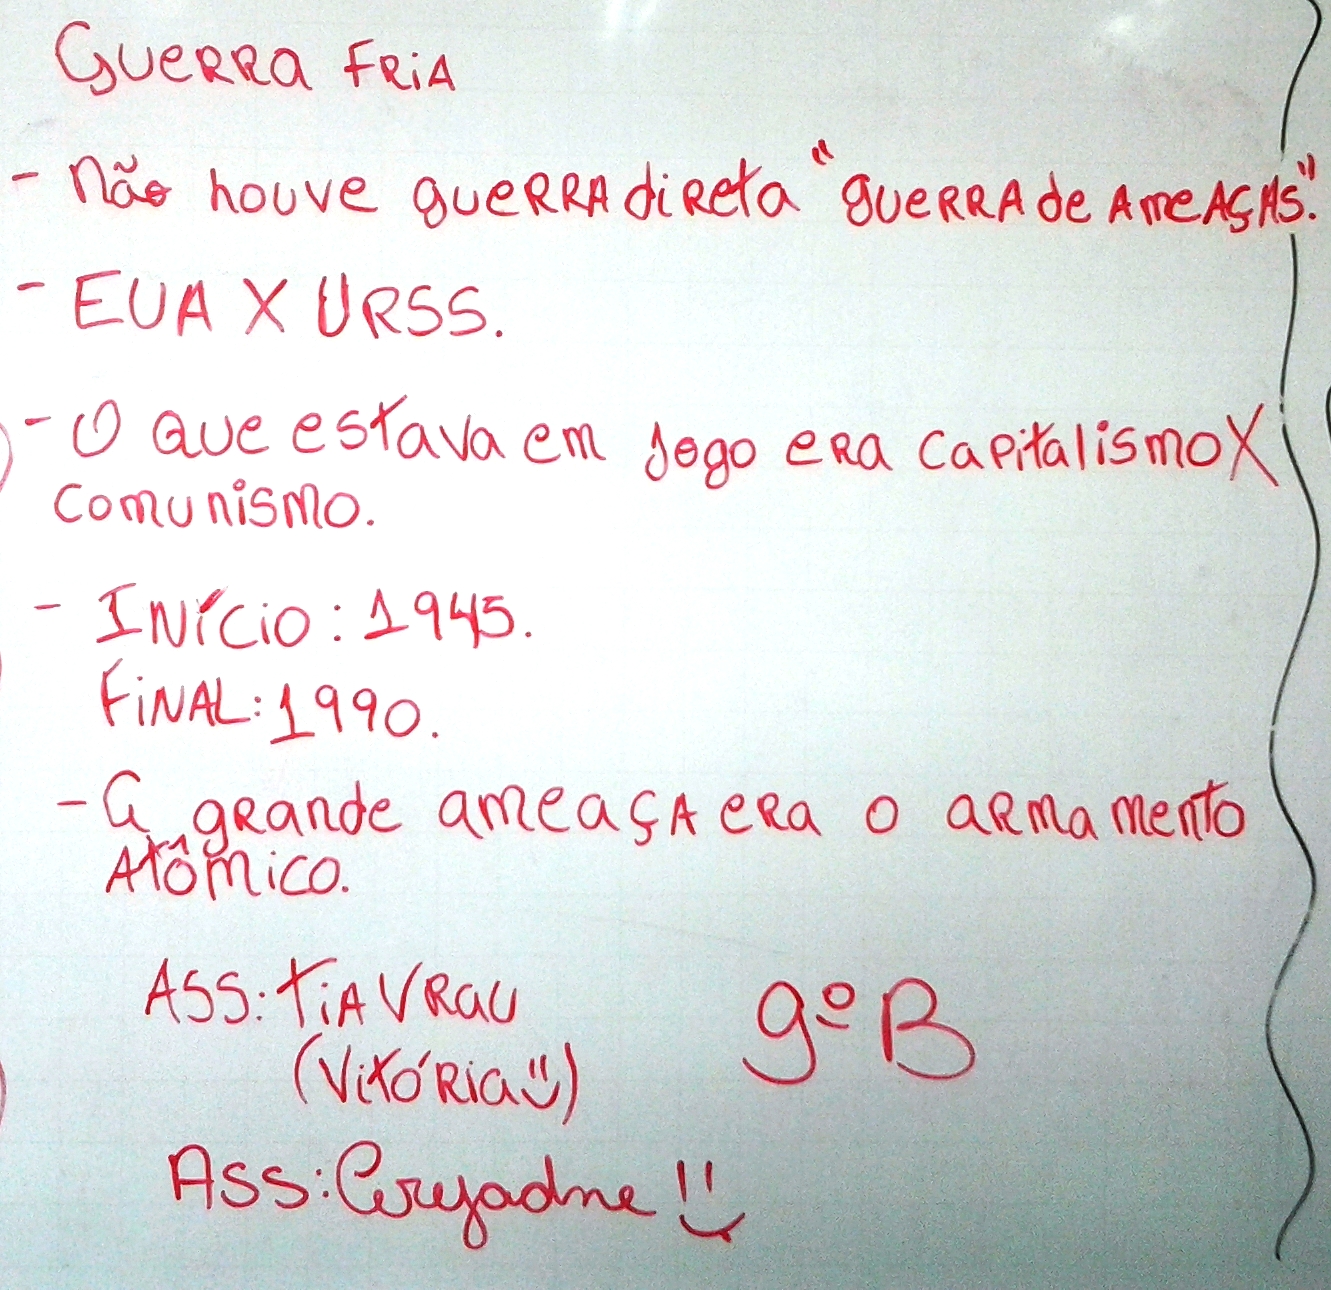 Guerra Fria
- Não houve guerra direta "guerra de ameaças".
- EUA X URSS.
- O que estava em jogo era capitalismo X
comunismo.
- Início: 1945.
Final: 1990.
- A grande ameaça era o armamento
atômico.
Ass: Tia Vrau
(Vitória)
9º B
Ass: